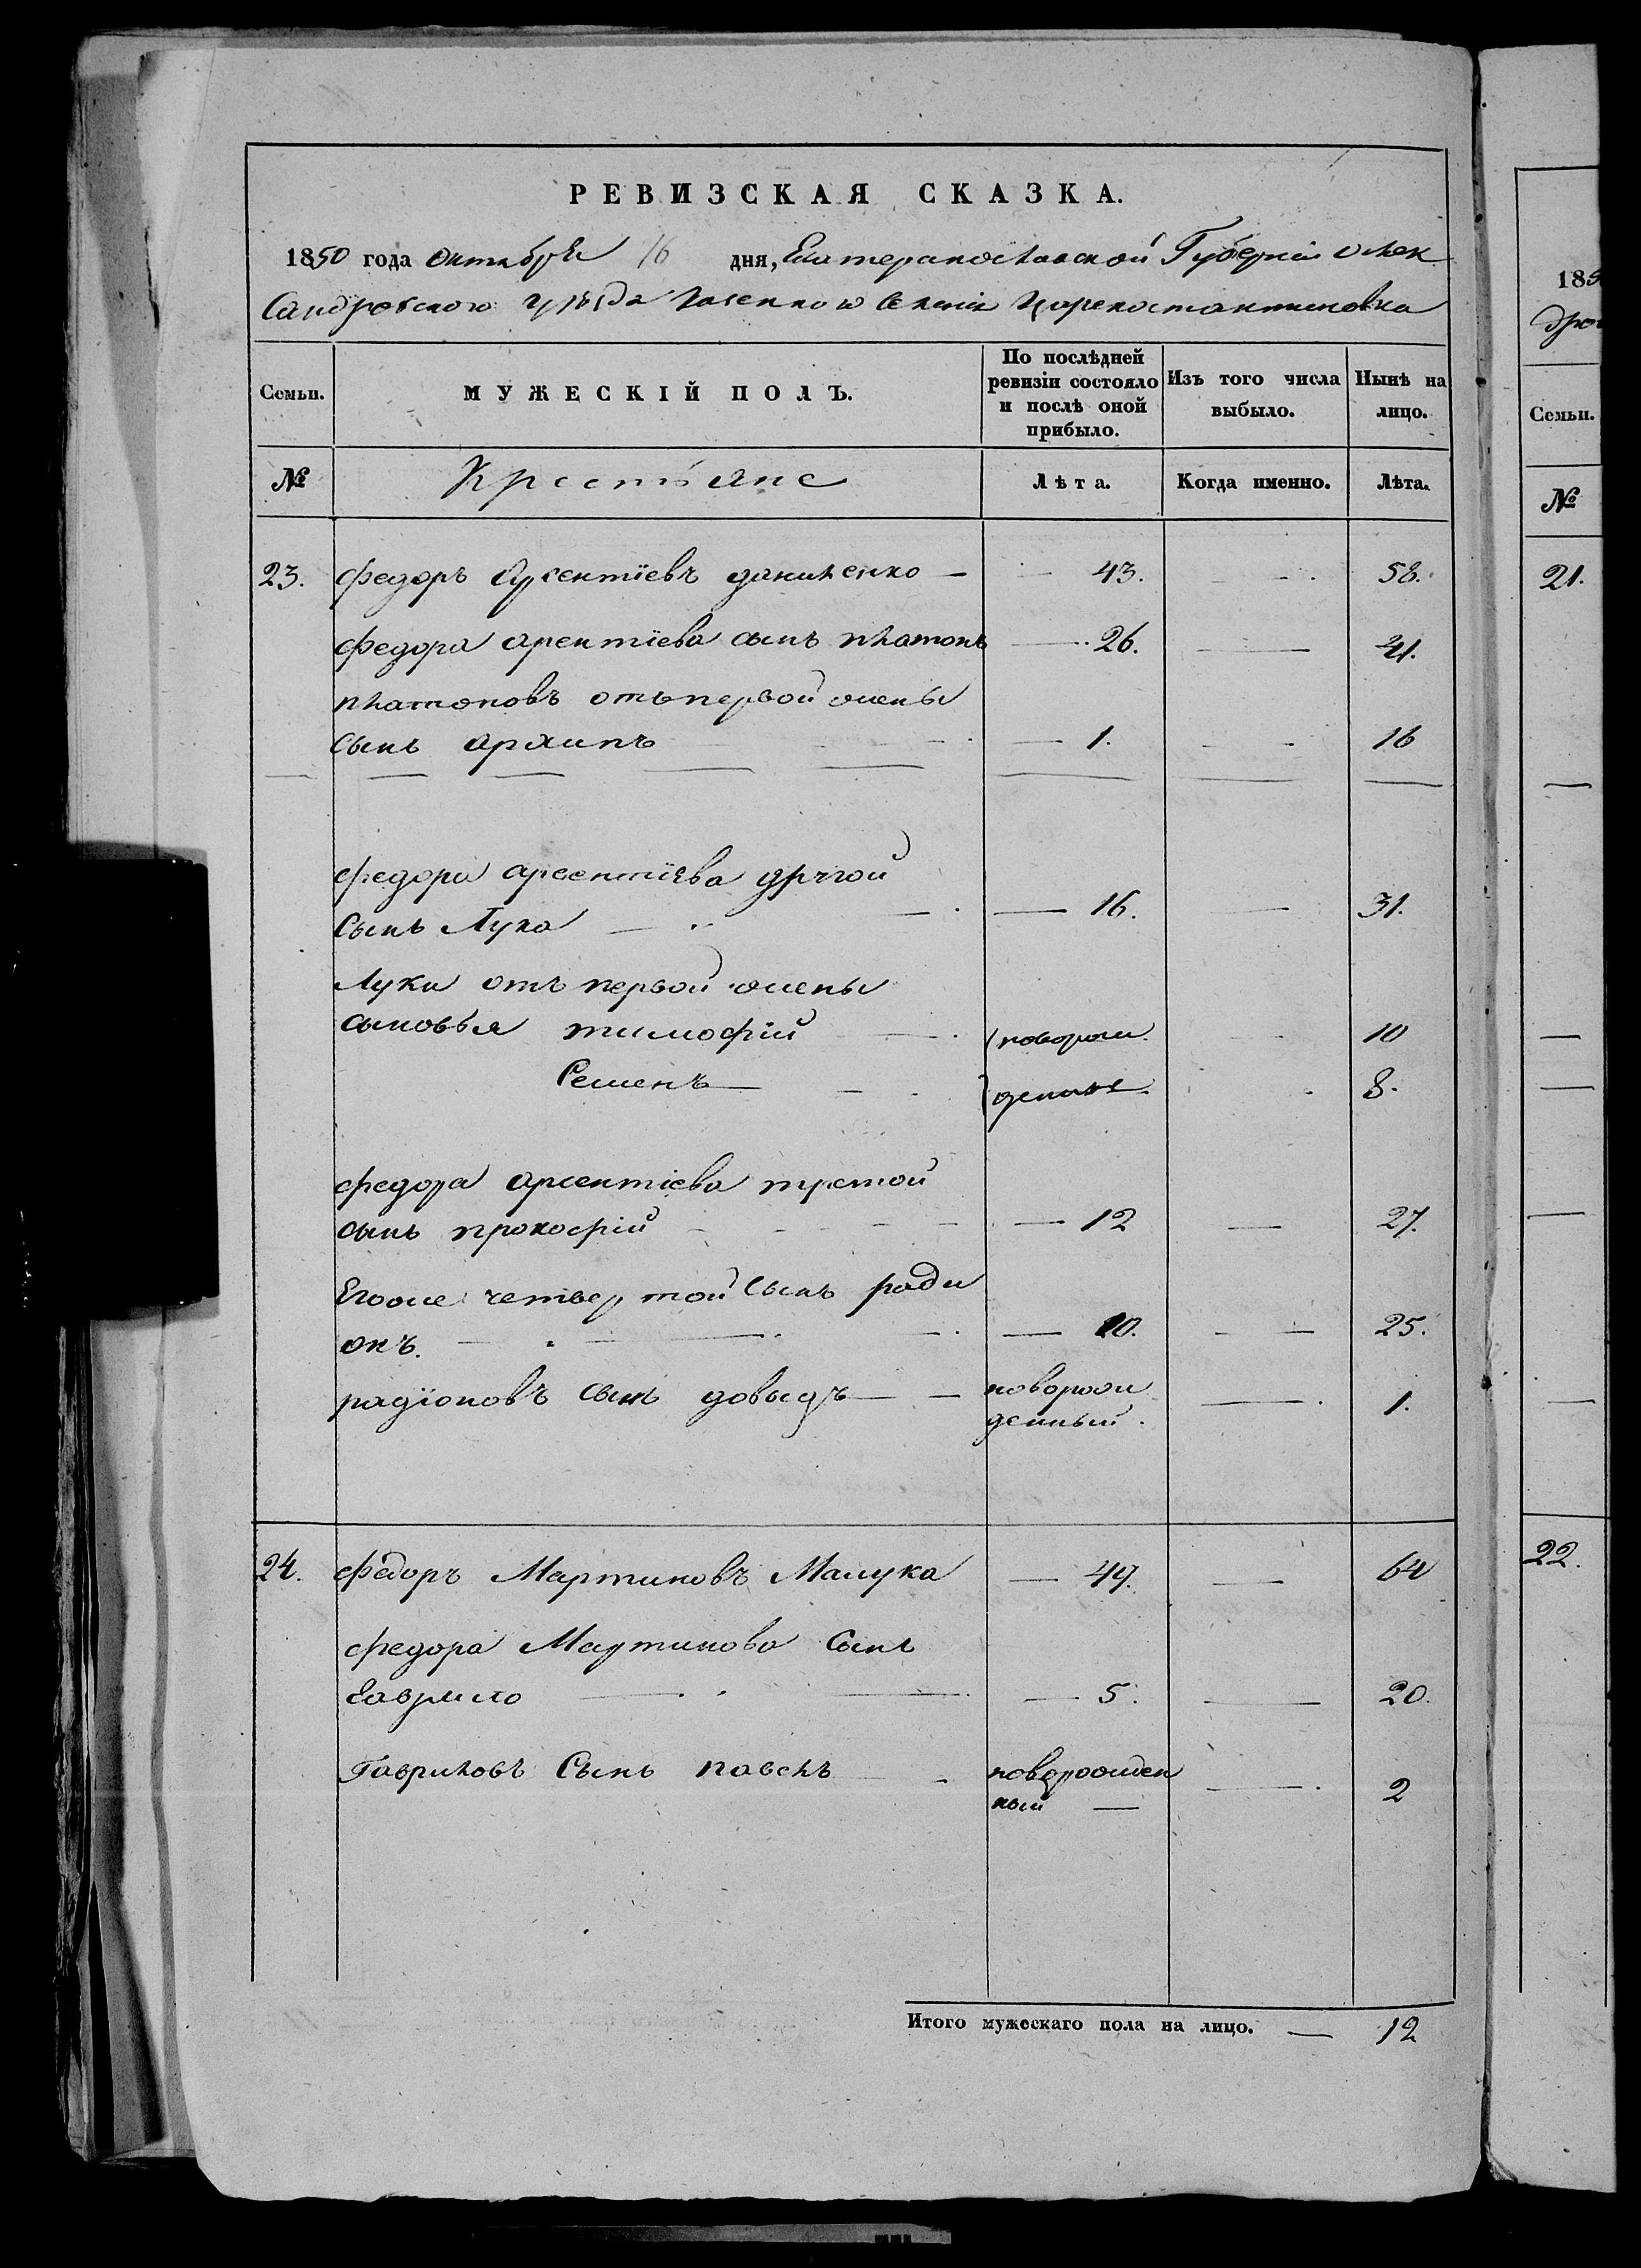 РЕВИЗСКАЯ СКАЗКА.
1850 года Октября 16 дня, Екатеринославской Губерніи Алек
Сандровского уѣзда казенного Селенія Цареконстантиновка
Семьи. МУЖЕСКІЙ ПОЛЪ. По послѣдней ревизіи состояло и послѣ оной прибыло. Изъ того числа выбыло. Нынѣ на лицо.
№ Крестьяне Лѣта. Когда именно. Лѣта.
23. федоръ Арсентіевъ даниленко — 43. — 58.
федора арсентіева сынъ платонъ — 26. — 41.
платоновъ отъ первой жены
Сынъ архипъ — 1. — 16
федора арсентіева другой
Сынъ Лука — 16. — 31.
Луки отъ первой жены
сыновья тимофій новорож 10
Семенъ — денные 8.
федора арсентіева третой
сынъ прокофій — 12 — 27.
Егоже четвертой Сынъ ради
онъ. — 10. — 25.
радіоновъ сынъ довыдъ — новорож
денный. — 1.
24. федоръ Мартиновъ Мацука — 49. — 64
федора Мартинова Сынъ
Гаврило — 5. — 20.
Гавриловъ Сынъ павелъ новорожден
ный — 2
Итого мужескаго пола на лицо. — 12
185
Семьи.
№
21.
22.